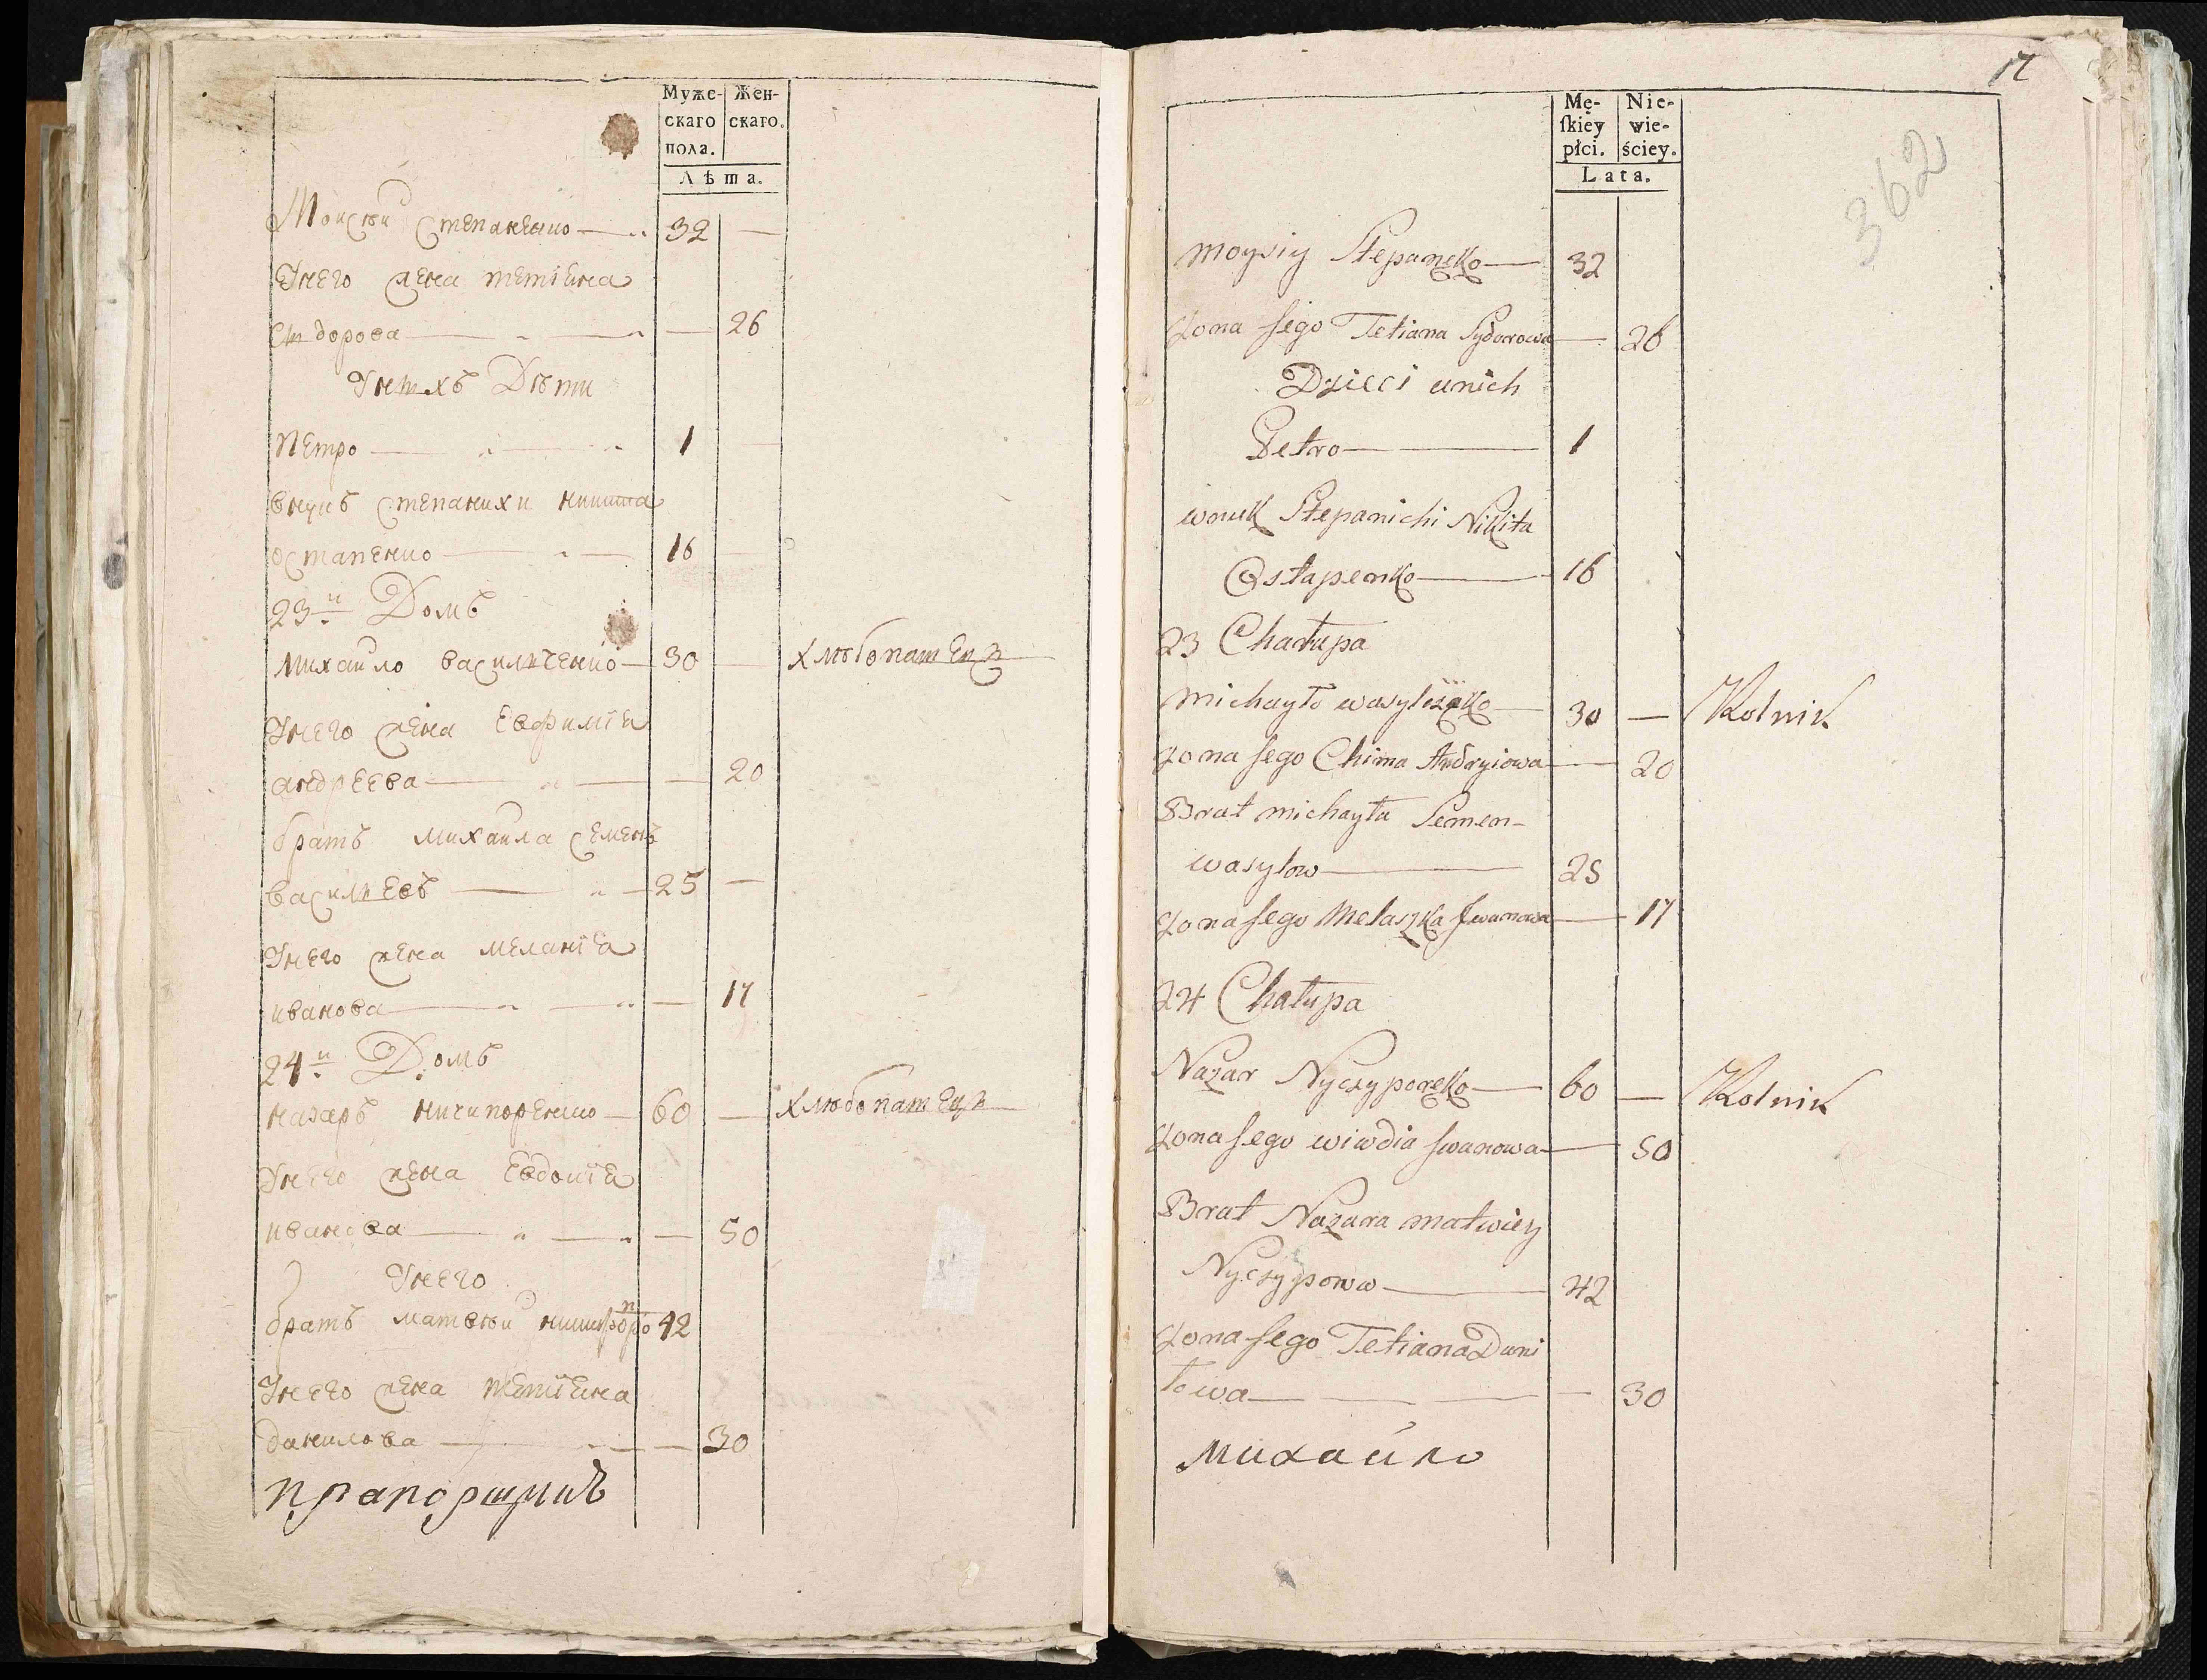 Муже- Жен-
скаго скаго.
пола.
Лѣта.
Моисѣй Степаненко 32 —
Унего жена тетіяна
Сидорова — 26
Унихъ Дѣти
Петро 1 —
внукъ степанихи никита
остапенко 16 —
23й Домъ
михайло василченко 30 — хлѣбопашецъ
Унего жена Евфимія
андреева — 20
братъ михаила семенъ
васильевъ 25 —
Унего жена меланія
иванова — 17
24й Домъ
назаръ ничипоренко 60 — хлѣбопашецъ
Унего жена Евдокія
иванова — 50
Унего
братъ матвѣй никифоро 42
Унего жена тетіяна
данилова — 30
прапорщикъ
17
362
Mę- Nie-
skiey wie-
płci. ściey.
Lata.
Moysiy Stepaneko 32
Zona Jego Tetiana Sydorowa — 26
Dzieci unich
Petro 1
wnuk Stepanichi Nikita
Ostapenko 16
23 Chałupa
Michayło wasylczeko 30 — Rolnik
Zona Jego Chima Andryiowa — 20
Brat michayła Semen-
wasylow 25
Zona Jego Melaszka Iwanowa — 17
24 Chałupa
Nazar Nyczyporeko 60 — Rolnik
Zona Jego wiwdia Iwanowa — 50
Brat Nazara matwiey
Nyczyporow 42
Zona Jego Tetiana Dani
łowa — 30
михайло